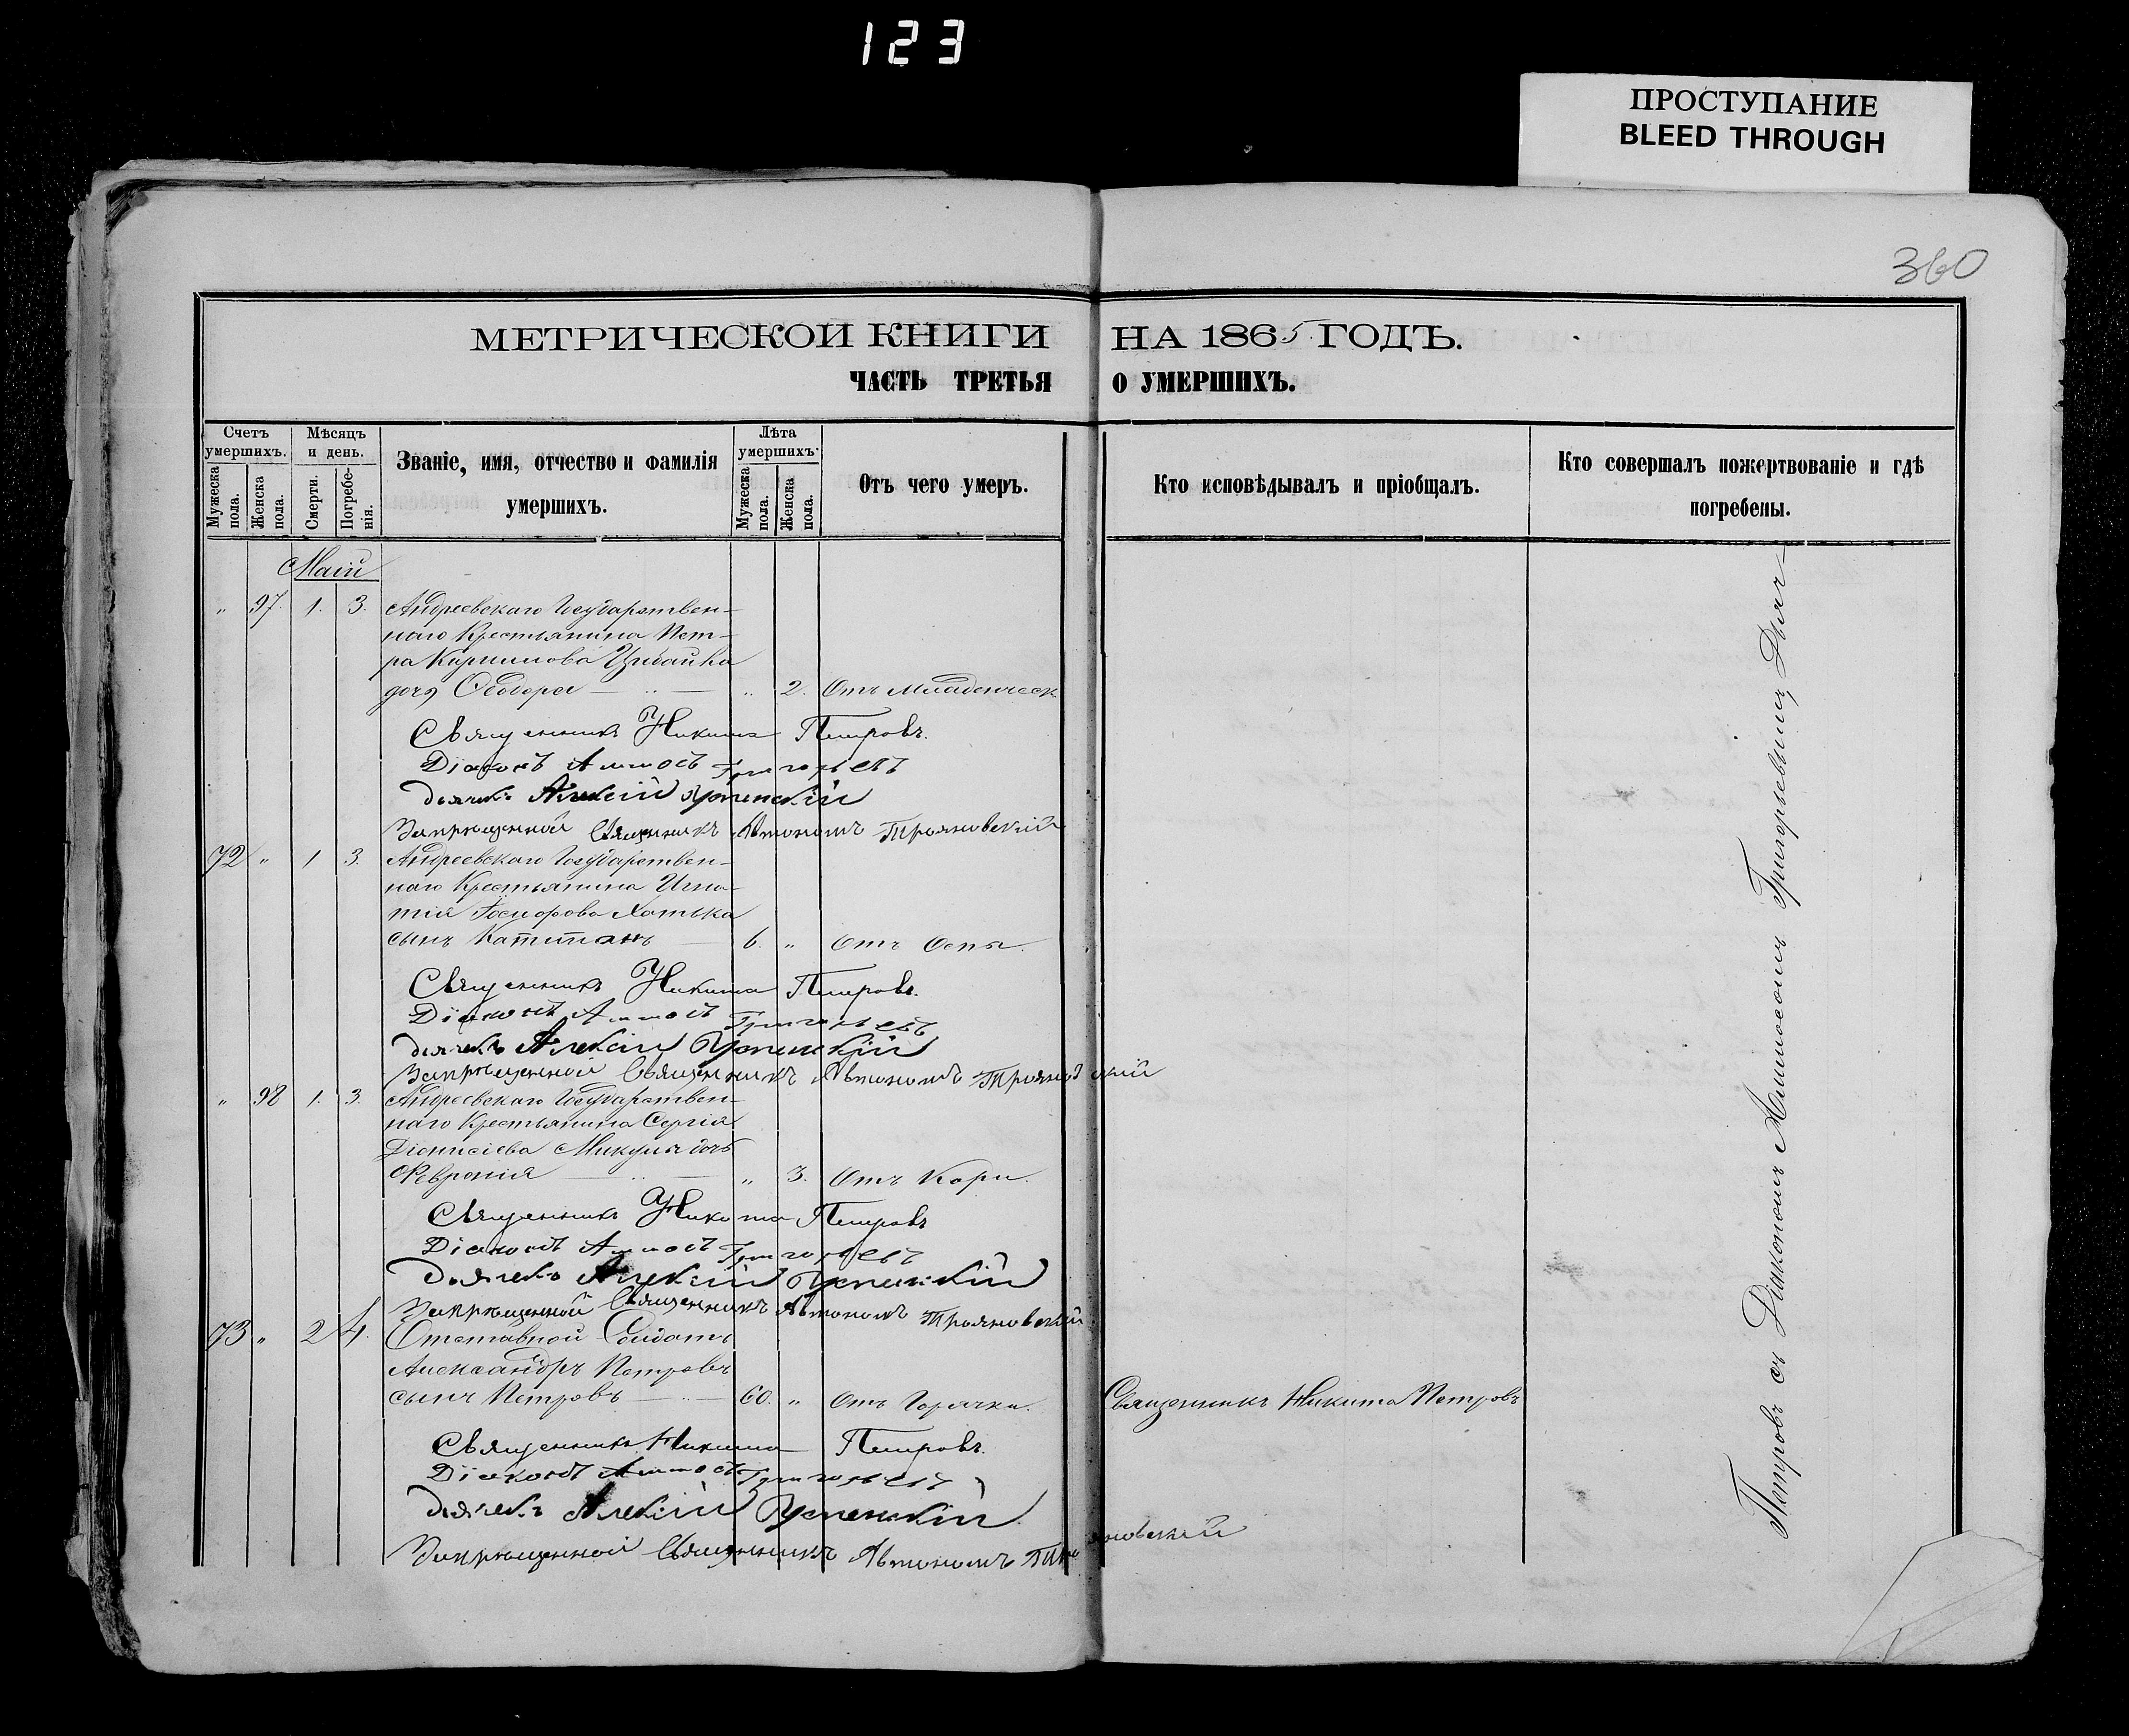 123
ПРОСТУПАНИЕ
BLEED THROUGH
360
МЕТРИЧЕСКОЙ КНИГИ НА 1865 ГОДЪ.
ЧАСТЬ ТРЕТЬЯ О УМЕРШИХЪ.
Счетъ умершихъ.
Мужеска пола.
Женска пола.
Мѣсяцъ и день.
Смерти.
Погребенія.
Званіе, имя, отчество и фамилія
умершихъ.
Лѣта умершихъ.
Мужеска пола.
Женска пола.
Отъ чего умеръ.
Кто исповѣдывалъ и пріобщалъ.
Кто совершалъ пожертвованіе и гдѣ
погребены.
Маій
" 97. 1. 3. Андреевскаго Государствен-
наго Крестьянина Пет-
ра Кириллова
дочь Ѳеодора " 2. Отъ Младенческ.
Священникъ Никита Петровъ.
Діаконъ Аммосъ Григорьевъ
дьячекъ Алексій Успенскій
Запрещенной Священникъ Автономъ Трояновскій
72 " 1 3. Андреевскаго Государствен-
наго Крестьянина Игна-
тія Хотька
сынъ Капитонъ 6. " Отъ Оспы.
Священникъ Никита Петровъ.
Діаконъ Аммосъ Григорьевъ
дьячекъ Алексій Успенскій
Запрещенной Священникъ Автономъ Трояновскій
" 98 1. 3. Андреевскаго Государствен-
наго Крестьянина Сергія
Діонисіева Микулы дочь
Февронія " 3. Отъ Кори.
Священникъ Никита Петровъ
Діаконъ Аммосъ Григорьевъ
дьячекъ Алексій Успенскій
Запрещенной Священникъ Автономъ Трояновскій
73 " 2 4. Отставной Солдатъ
Александръ Петровъ
сынъ Петровъ 60. " Отъ Горячки. Священникъ Никита Петровъ
Священникъ Никита Петровъ.
Діаконъ Аммосъ Григорьевъ
дьячекъ Алексій Успенскій
Запрещенной Священникъ Автономъ Трояновскій
Петровъ съ Діакономъ Аммосомъ Григорьевымъ, Дьяч-